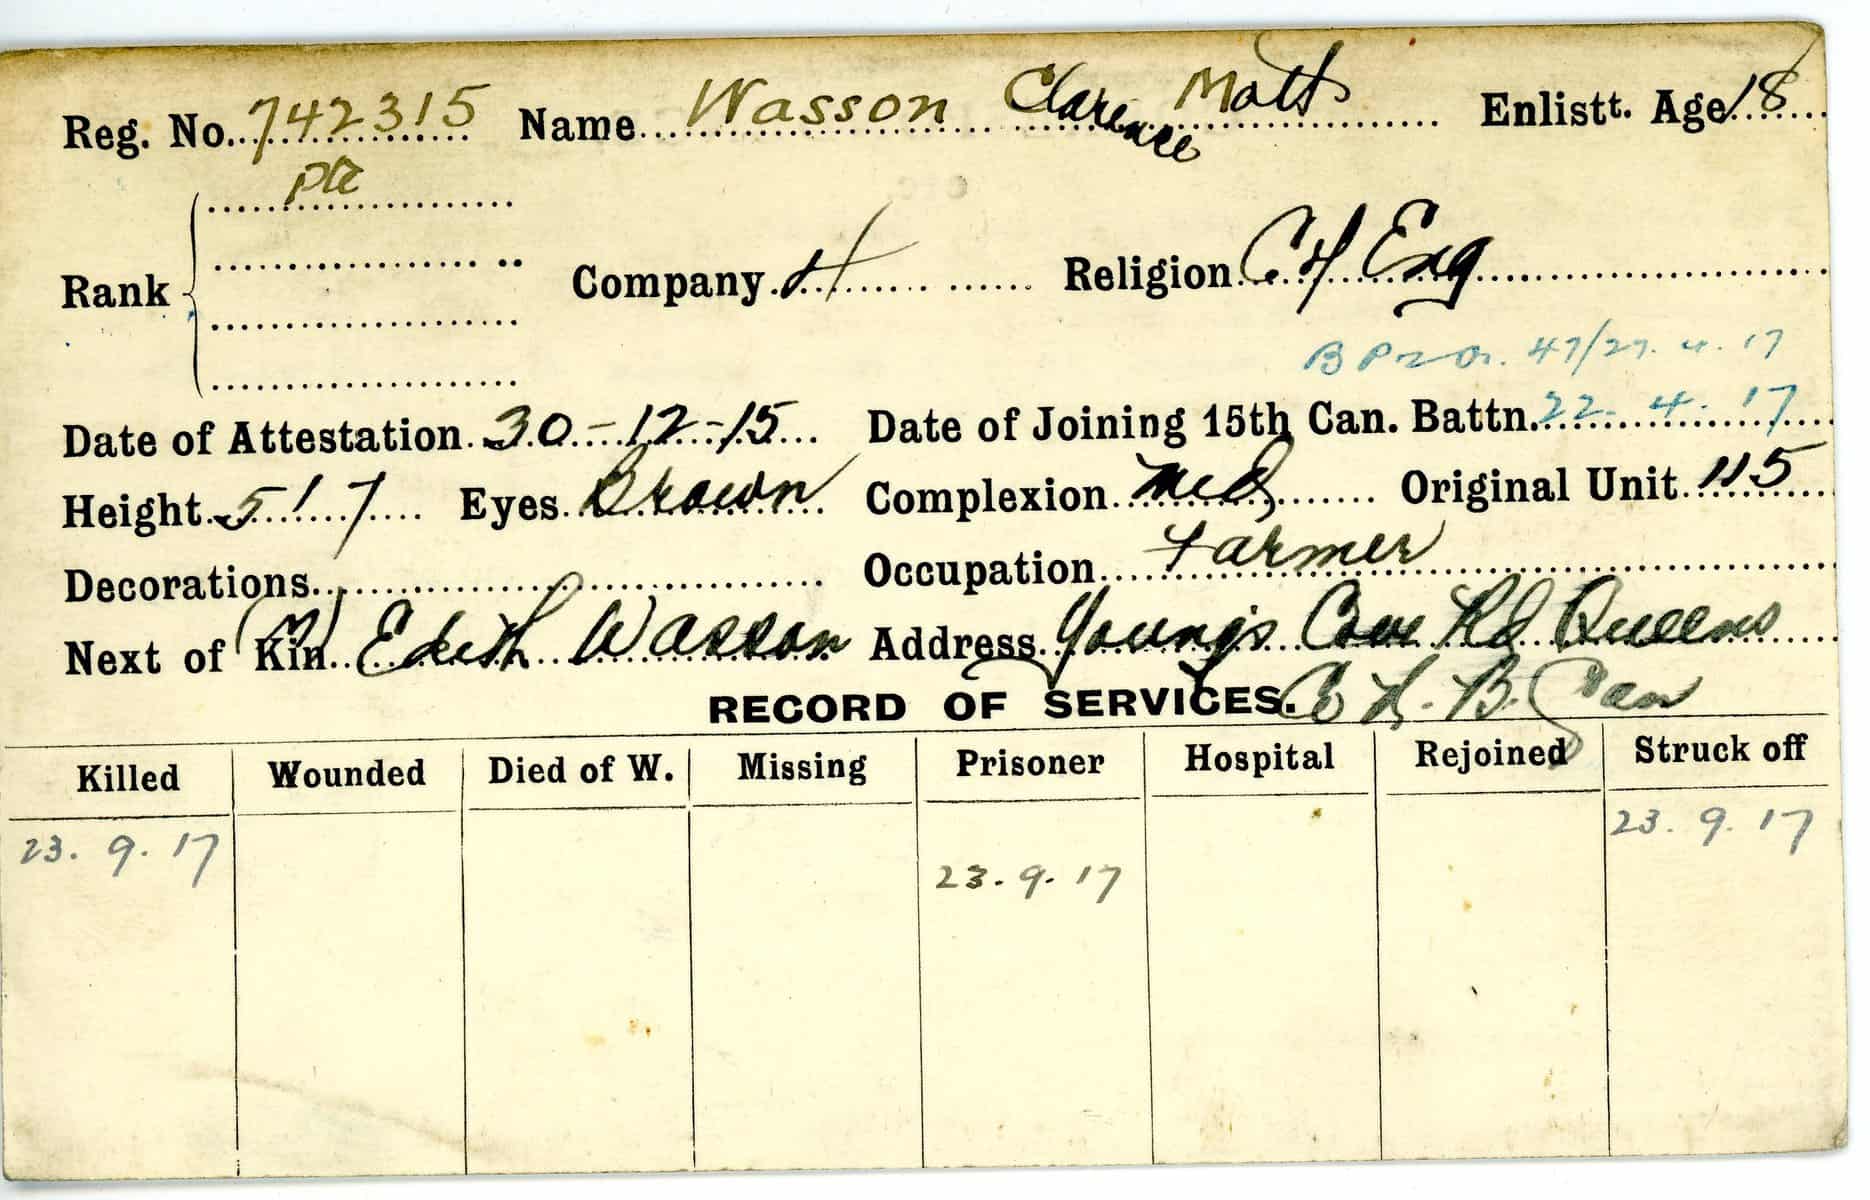 Reg. No. 742315 Name Wasson Clarence Enlistt. Age 18
Pte
Rank Company 4 Religion C of Eng
47/27. 4. 17
Date of Attestation 30-12-15 Date of Joining 15th Can. Battn. 22. 4. 17
Height 5' 7 Eyes Brown Complexion Med Original Unit 115
Decorations Occupation Farmer
Next of Kin (M) Edith Wasson Address Youngs Cove Rd Queens
RECORD OF SERVICES. Co N. B. Can
Killed Wounded Died of W. Missing Prisoner Hospital Rejoined Struck off
23. 9. 17 23. 9. 17 23. 9. 17